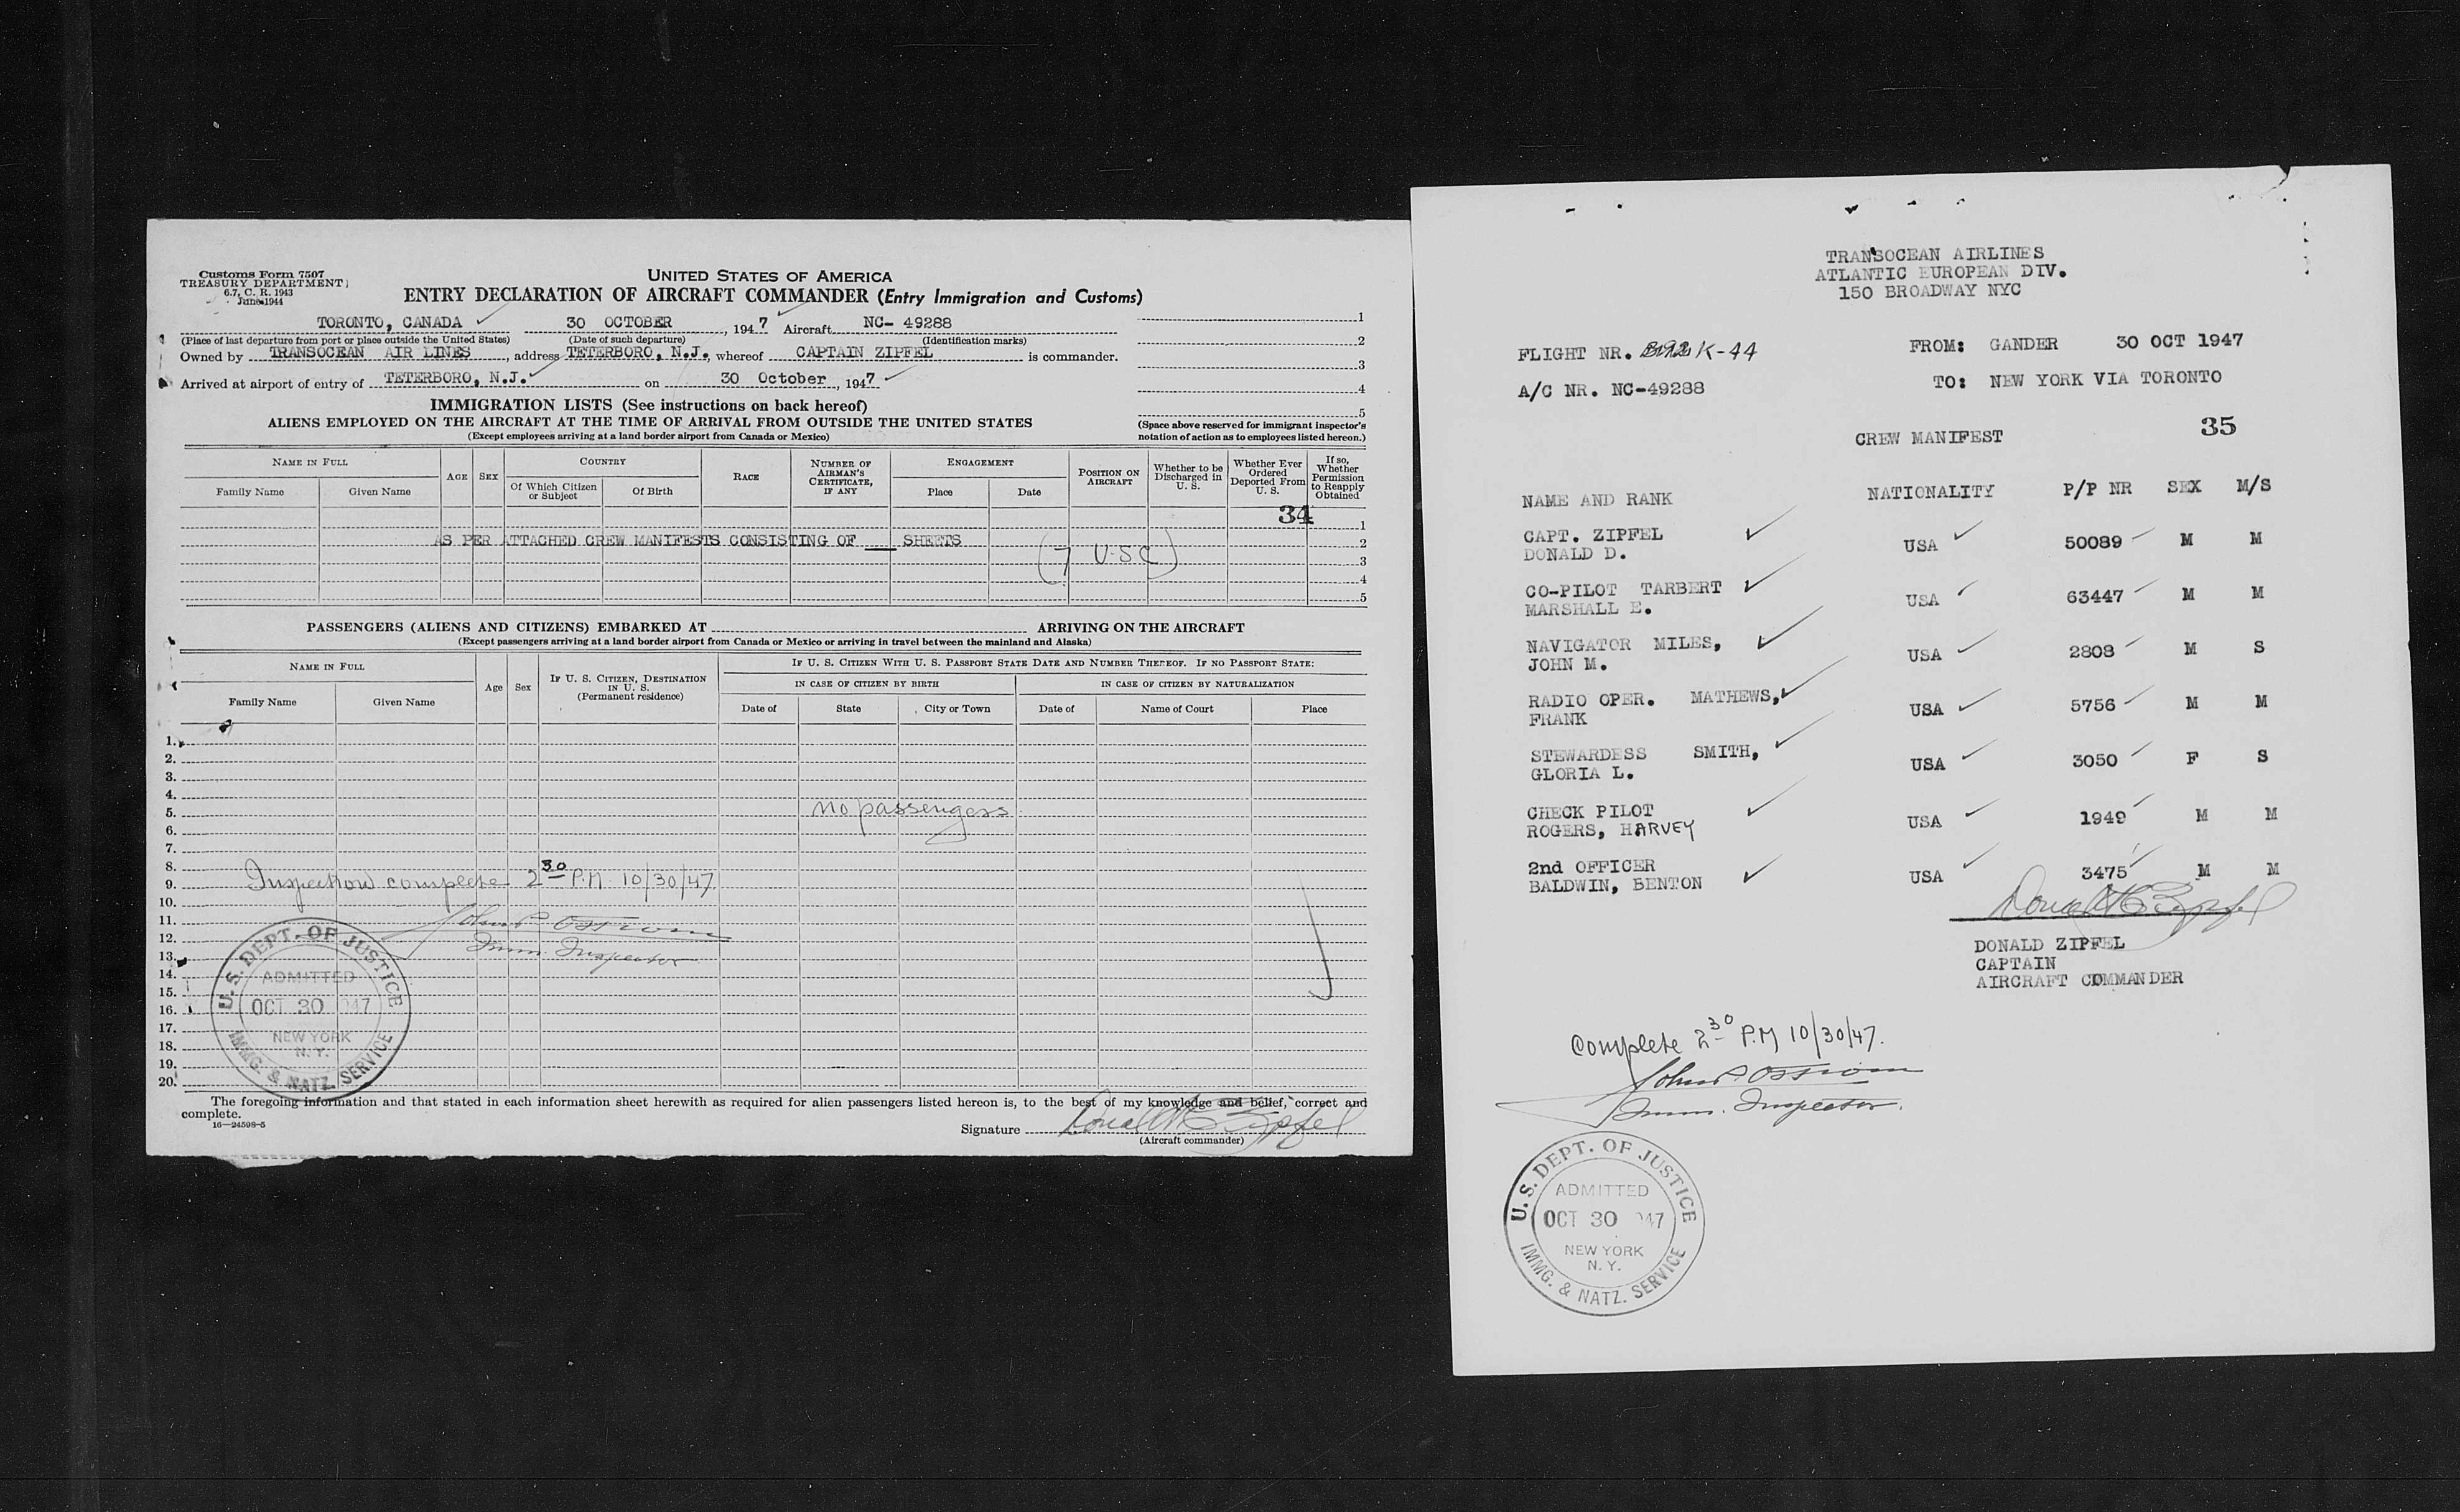 Customs Form 7507
TREASURY DEPARTMENT
6.7, C. R. 1943
June 1944
UNITED STATES OF AMERICA
ENTRY DECLARATION OF AIRCRAFT COMMANDER (Entry Immigration and Customs)
TORONTO, CANADA 30 OCTOBER, 1947 Aircraft NC- 49288
(Place of last departure from port or place outside the United States) (Date of such departure) (Identification marks)
Owned by TRANSOCEAN AIR LINES, address TETERBORO, N.J., whereof CAPTAIN ZIPFEL is commander.
Arrived at airport of entry of TETERBORO, N.J. on 30 October, 1947
1
2
3
4
5
(Space above reserved for immigrant inspector's
notation of action as to employees listed hereon.)
IMMIGRATION LISTS (See instructions on back hereof)
ALIENS EMPLOYED ON THE AIRCRAFT AT THE TIME OF ARRIVAL FROM OUTSIDE THE UNITED STATES
(Except employees arriving at a land border airport from Canada or Mexico)
NAME IN FULL
Family Name Given Name
AGE
SEX
COUNTRY
Of Which Citizen or Subject
Of Birth
RACE
NUMBER OF AIRMAN'S CERTIFICATE, IF ANY
ENGAGEMENT
Place Date
POSITION ON AIRCRAFT
Whether to be Discharged in U. S.
Whether Ever Ordered Deported From U. S.
If so, Whether Permission to Reapply Obtained
34
1
AS PER ATTACHED CREW MANIFESTS CONSISTING OF __ SHEETS 2
(7 U.S.C) 3
4
5
PASSENGERS (ALIENS AND CITIZENS) EMBARKED AT ARRIVING ON THE AIRCRAFT
(Except passengers arriving at a land border airport from Canada or Mexico or arriving in travel between the mainland and Alaska)
NAME IN FULL
Family Name Given Name
Age
Sex
IF U. S. CITIZEN, DESTINATION IN U. S.
(Permanent residence)
IF U. S. CITIZEN WITH U. S. PASSPORT STATE DATE AND NUMBER THEREOF. IF NO PASSPORT STATE:
IN CASE OF CITIZEN BY BIRTH IN CASE OF CITIZEN BY NATURALIZATION
Date of State City or Town Date of Name of Court Place
1.
2.
3.
4.
5. no passengers
6.
7.
8.
9. Inspection complete 2 30 P.M. 10/30/47
10.
11. John P. Ostrom
12. Imm. Inspector
13.
14.
15.
16.
17.
18.
19.
20.
U. S. DEPT. OF JUSTICE
ADMITTED
OCT 30 947
NEW YORK
N. Y.
IMMG. & NATZ. SERVICE
The foregoing information and that stated in each information sheet herewith as required for alien passengers listed hereon is, to the best of my knowledge and belief, correct and
complete.
16—24598-5
Signature Donald Zipfel
(Aircraft commander)
TRANSOCEAN AIRLINES
ATLANTIC EUROPEAN DIV.
150 BROADWAY NYC
FLIGHT NR. K-44 FROM: GANDER 30 OCT 1947
A/C NR. NC-49288 TO: NEW YORK VIA TORONTO
35
CREW MANIFEST
NAME AND RANK NATIONALITY P/P NR SEX M/S
CAPT. ZIPFEL
DONALD D. USA 50089 M M
CO-PILOT TARBERT
MARSHALL E. USA 63447 M M
NAVIGATOR MILES,
JOHN M. USA 2808 M S
RADIO OPER. MATHEWS,
FRANK USA 5756 M M
STEWARDESS SMITH,
GLORIA L. USA 3050 F S
CHECK PILOT
ROGERS, HARVEY USA 1949 M M
2nd OFFICER
BALDWIN, BENTON USA 3475 M M
Donald Zipfel
DONALD ZIPFEL
CAPTAIN
AIRCRAFT COMMANDER
Complete 2 30 P.M 10/30/47.
John P. Ostrom
Imm. Inspector.
U. S. DEPT. OF JUSTICE
ADMITTED
OCT 30 947
NEW YORK
N. Y.
IMMG. & NATZ. SERVICE